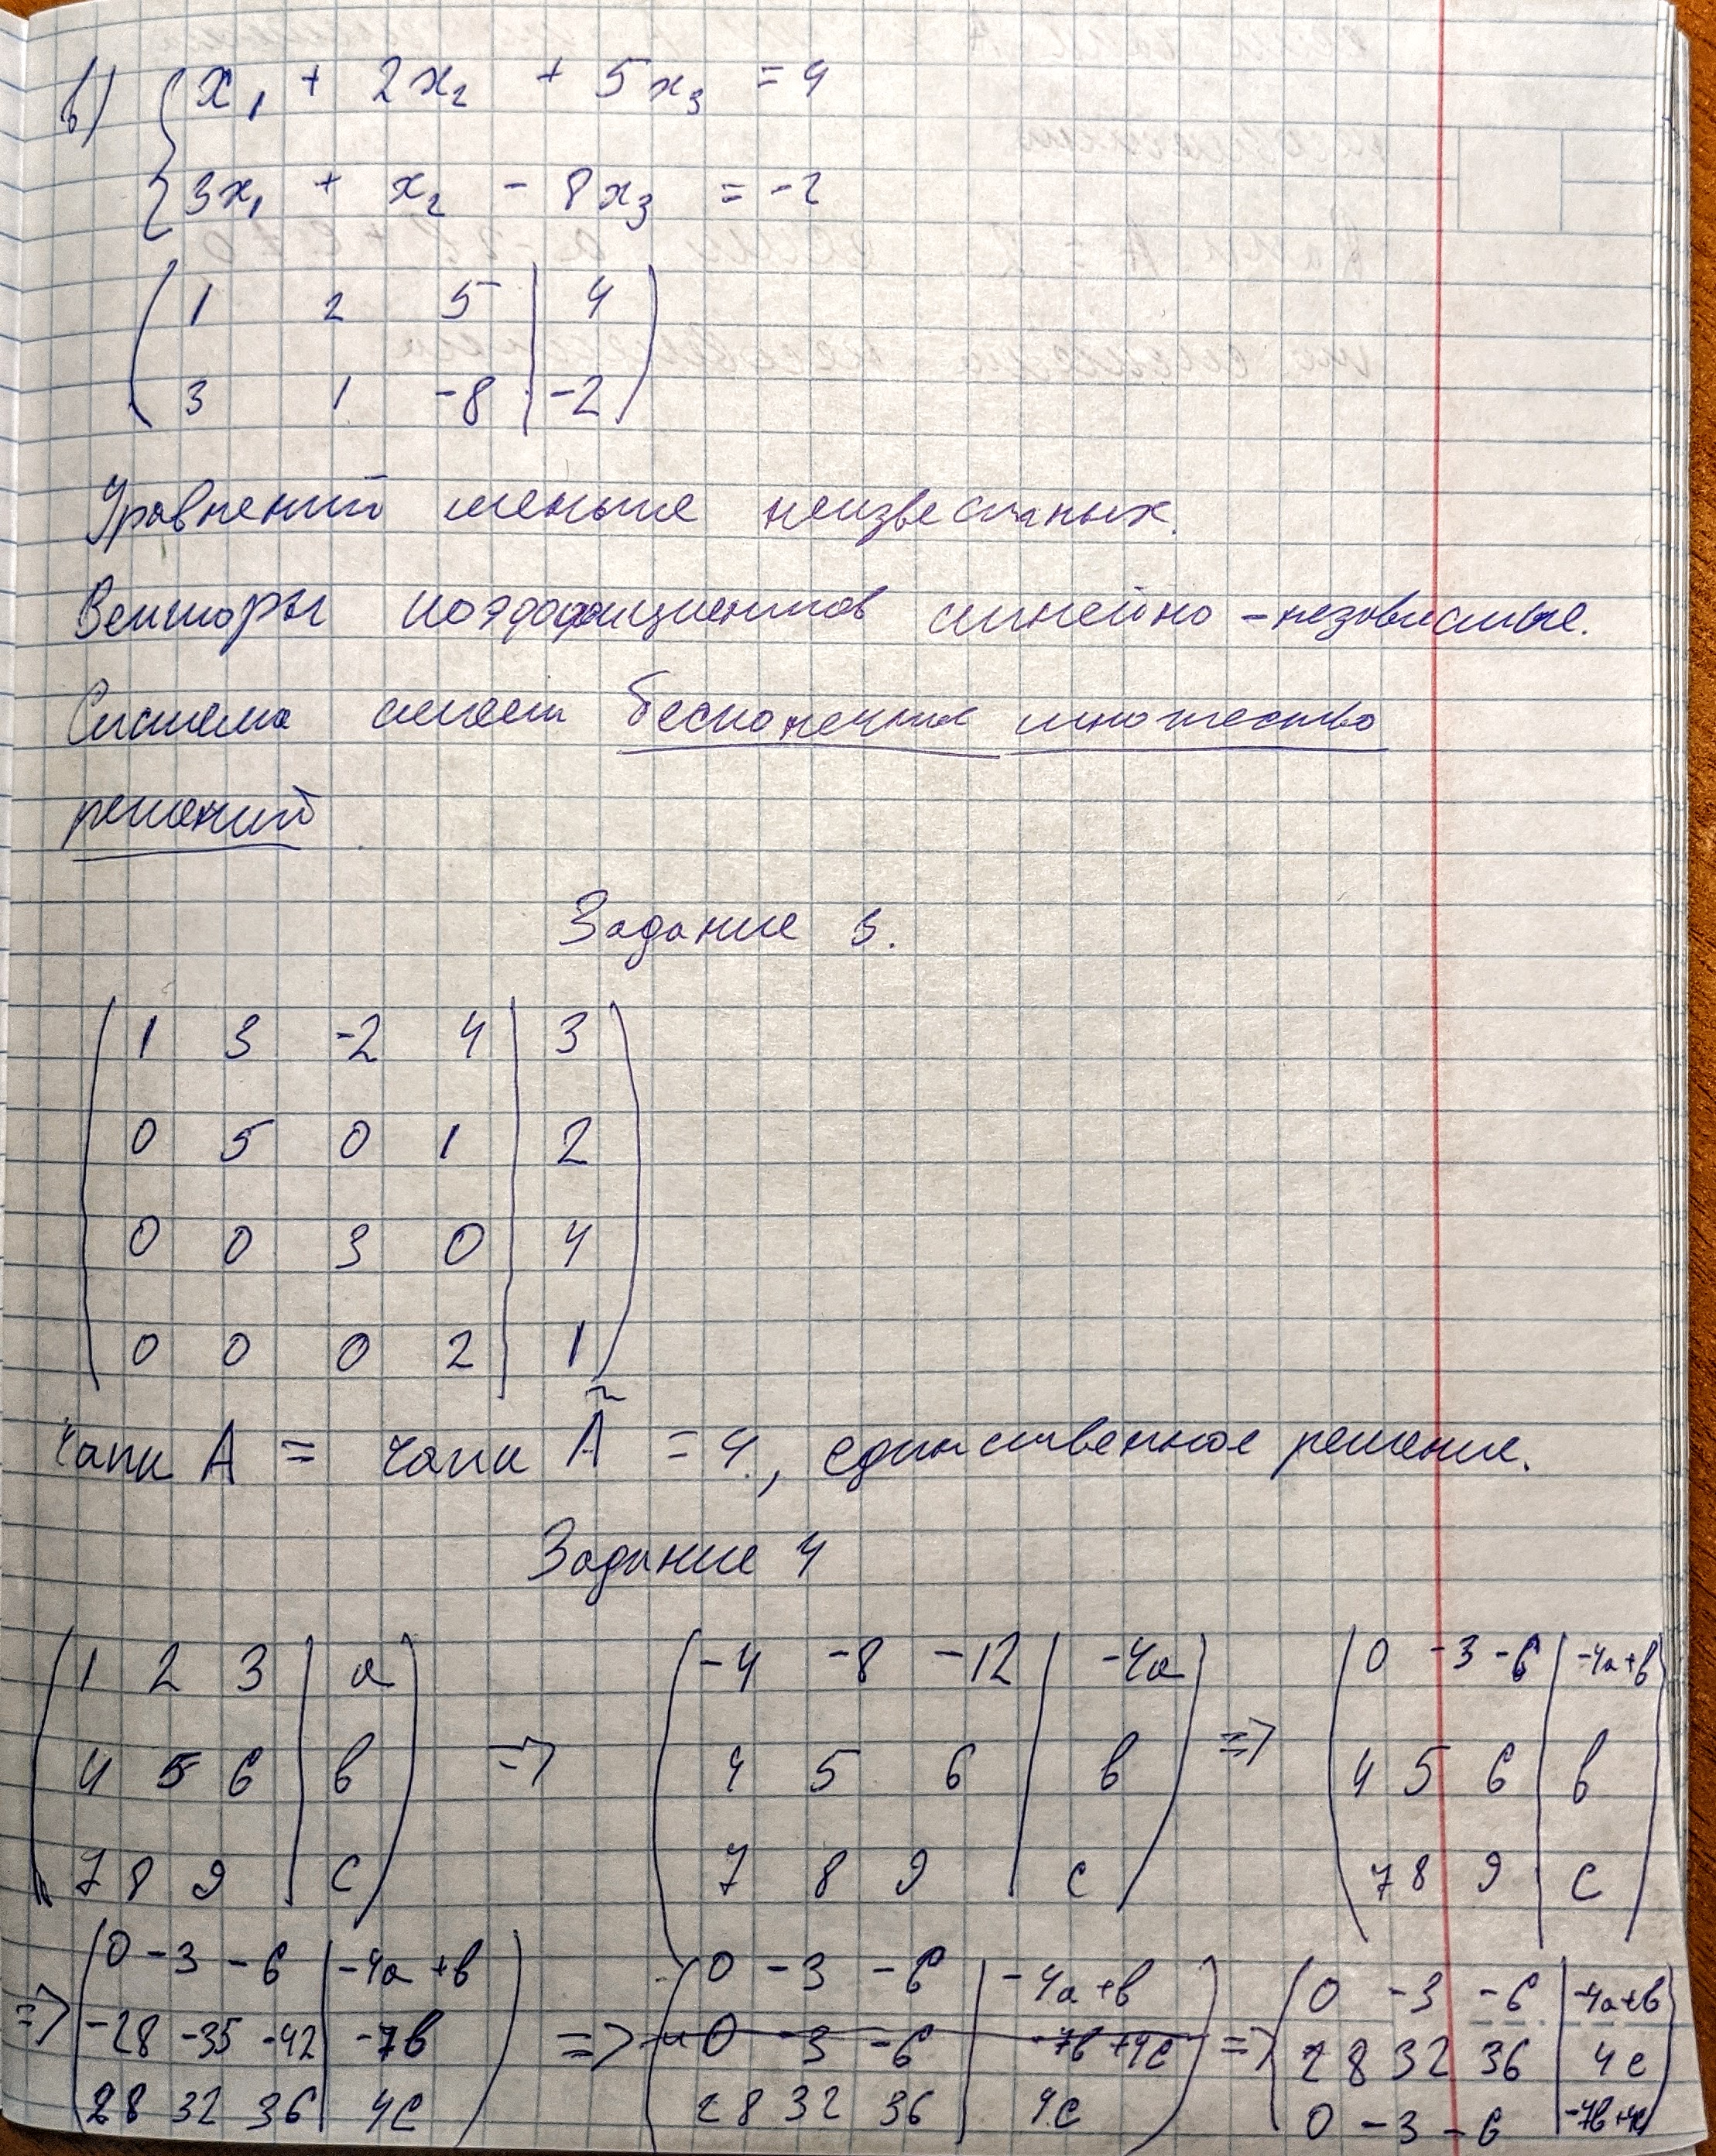 в) { x₁ + 2x₂ + 5x₃ = 4
3x₁ + x₂ - 8x₃ = -2
( 1 2 5 | 4 )
( 3 1 -8 | -2 )
Уравнений меньше неизвестных.
Векторы коэффициентов линейно-независимые.
Система имеет бесконечное множество
решений
Задание 3.
( 1 3 -2 4 | 3 )
( 0 5 0 1 | 2 )
( 0 0 3 0 | 4 )
( 0 0 0 2 | 1 )
rank A = rank Ã = 4, единственное решение.
Задание 4
( 1 2 3 | a ) ( -4 -8 -12 | -4a ) ( 0 -3 -6 | -4a+b )
( 4 5 6 | b ) => ( 4 5 6 | b ) => ( 4 5 6 | b )
( 7 8 9 | c ) ( 7 8 9 | c ) ( 7 8 9 | c )
( 0 -3 -6 | -4a+b ) ( 0 -3 -6 | -4a+b ) ( 0 -3 -6 | -4a+b )
=> ( -28 -35 -42 | -7b ) => ( 0 -3 -6 -7b+4c ) => ( 28 32 36 | 4c )
( 28 32 36 | 4c ) ( 28 32 36 | 4c ) ( 0 -3 -6 | -7b+4c )